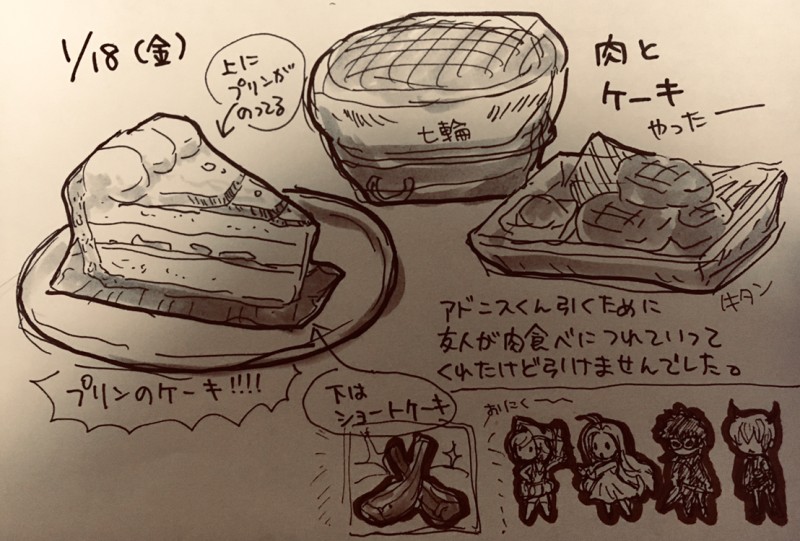 1/18(金)
上に
プリンが
のってる
七輪
肉と
ケーキ
やったー
牛タン
アドニスくん引くために
友人が肉食べにつれていって
くれたけど引けませんでした。
プリンのケーキ!!!!
下は
ショートケーキ
おにく〜